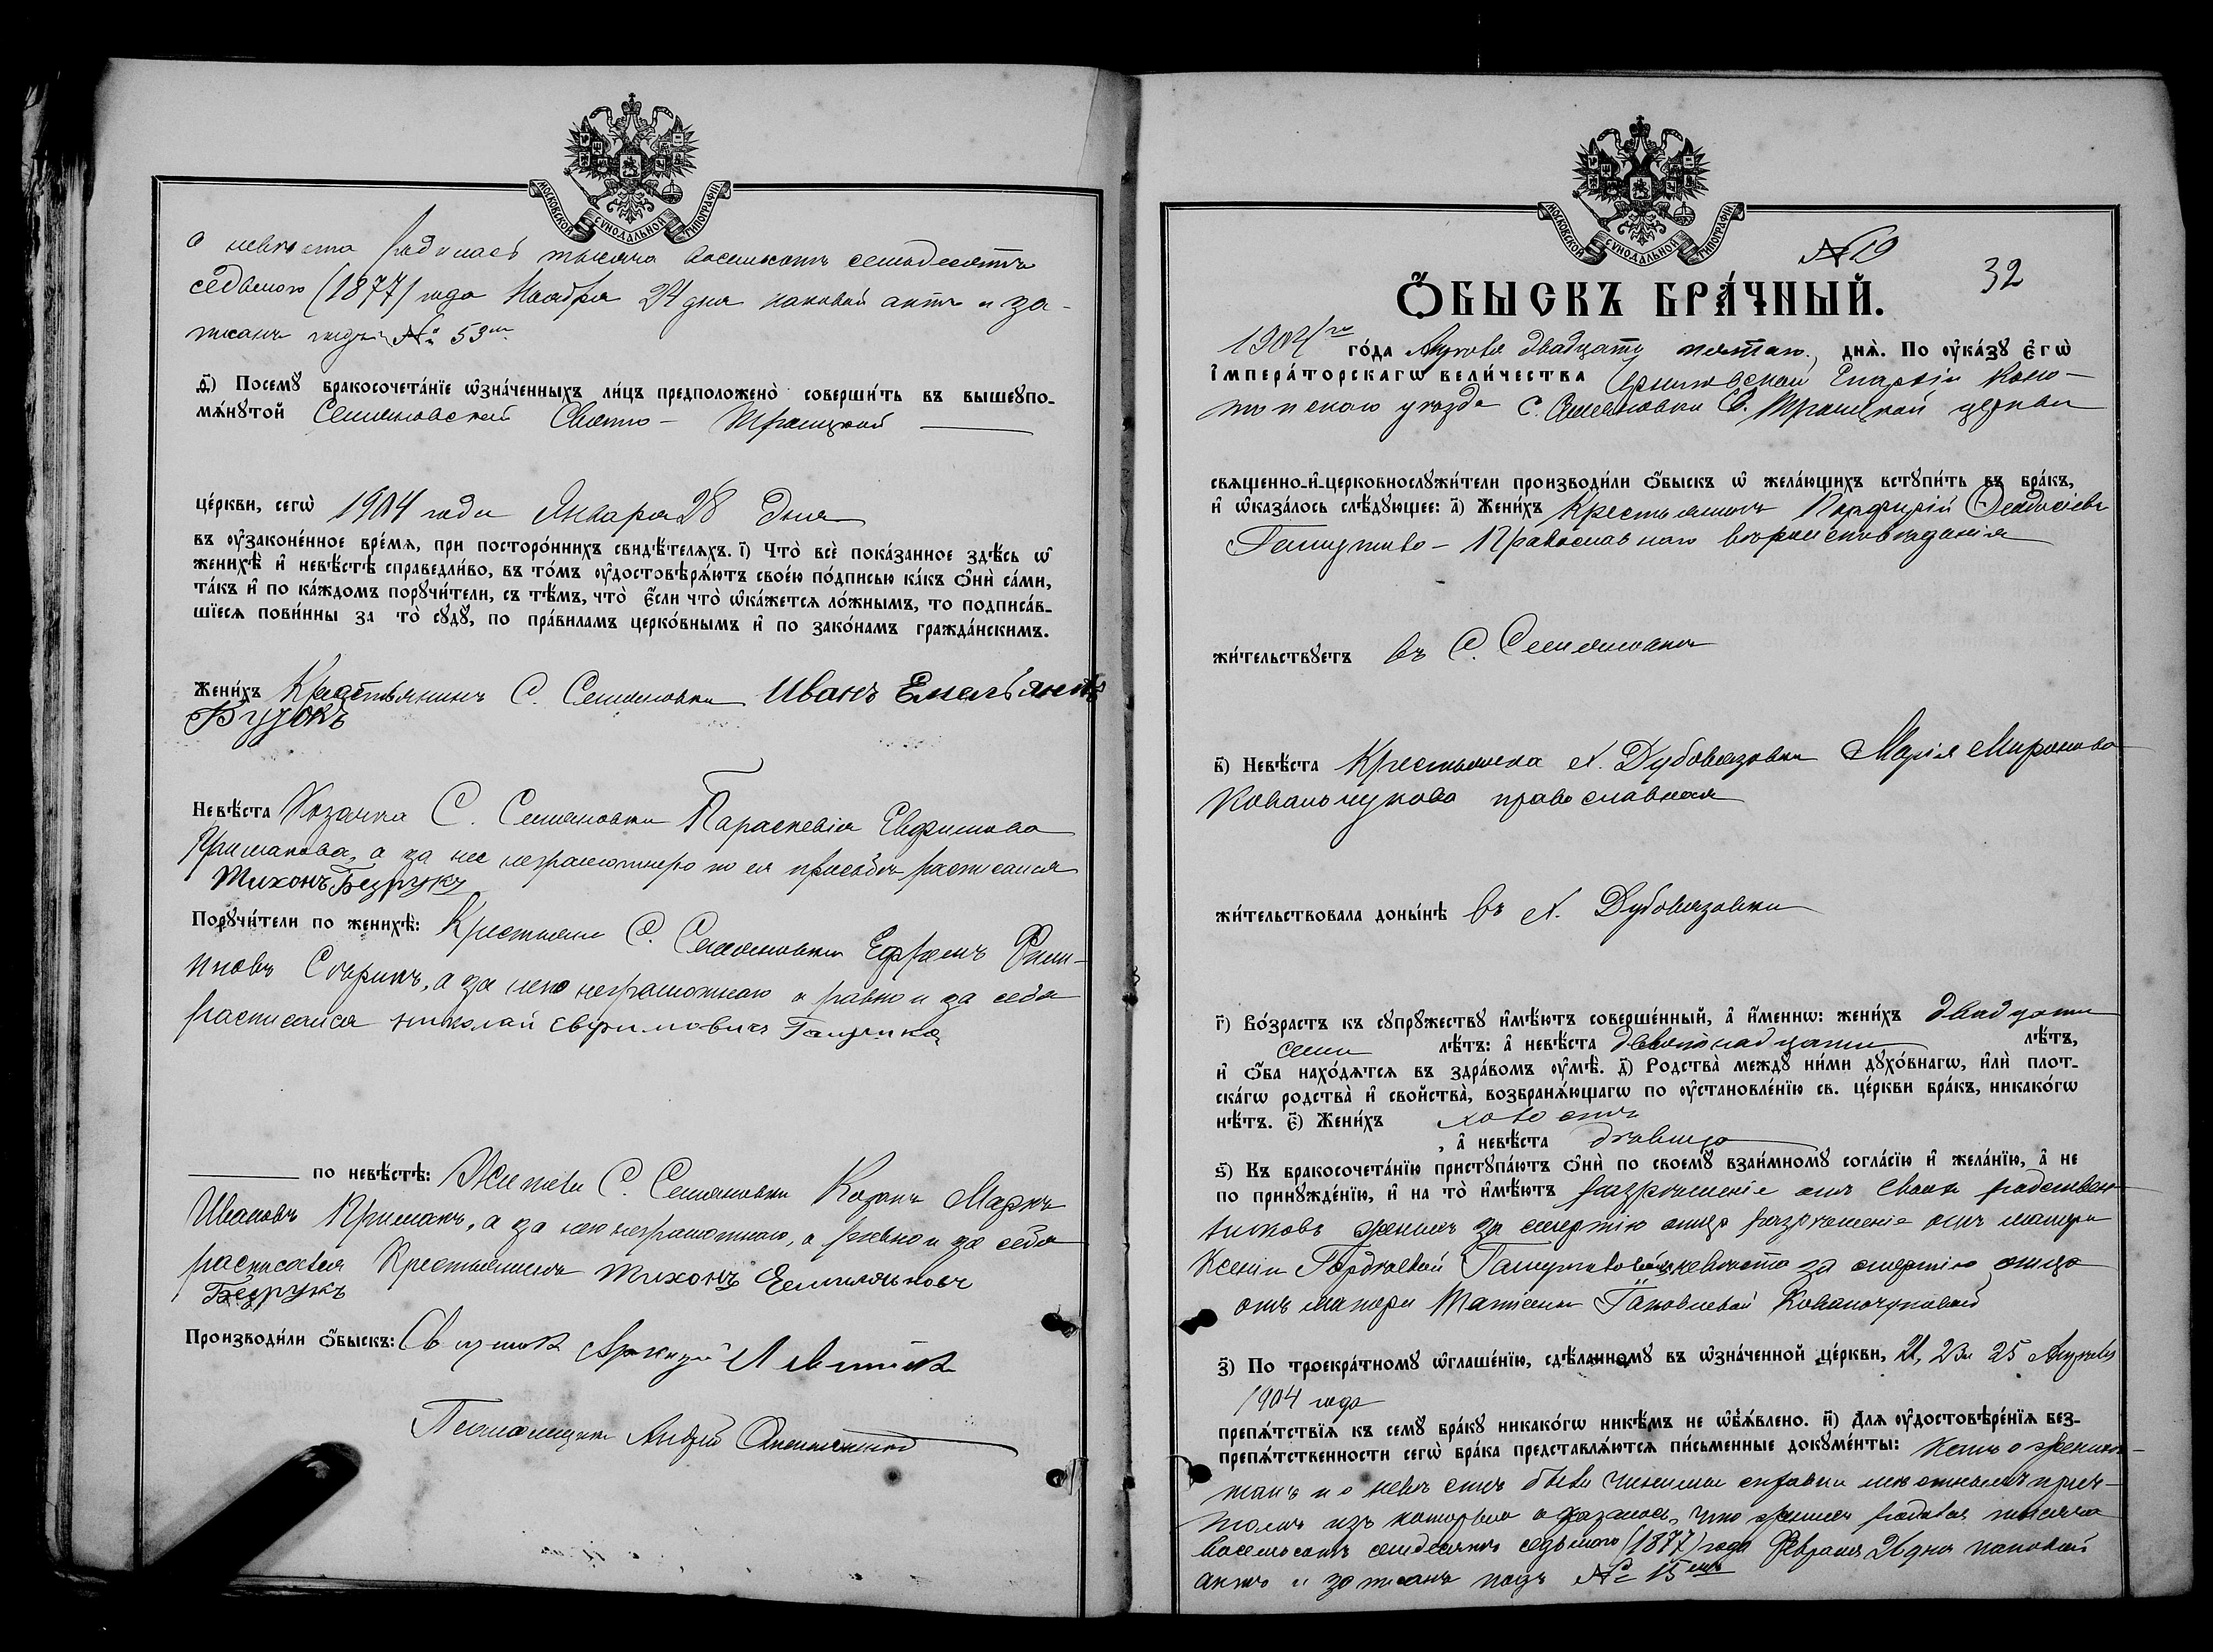 МОСКОВСКОЙ СУНОДАЛЬНОЙ ТИПОГРАФІИ
о невѣста родилась тысяча восемьсотъ семьдесятъ
седьмого (1877) года Ноября 24 дня каковой актъ и за-
писанъ подъ № 53
д҃) Посемꙋ бракосочета́нїе ѡ҆зна́ченныхъ ли́цъ предположено̀ соверши́ть въ вышеꙋпо-
мѧ́нꙋтой Семяновской Свято- Троицкой
це́ркви, сегѡ̀ 1904 года Января 28 дня
въ ᲂу҆зако́ненное вре́мѧ, при посторо́ннихъ свидѣ́телѧхъ. і҃) Что̀ всѐ пока́занное здѣ́сь ѡ҆
женихѣ̀ и҆ невѣ́стѣ справедли́во, въ то́мъ ᲂу҆достовѣрѧ́ютъ свое́ю по́дписью ка́къ ѻ҆нѝ са́ми,
та́къ и҆ по ка́ждомъ порꙋчи́тели, съ тѣ́мъ, что̀ є҆́сли что̀ ѡ҆ка́жетсѧ ло́жнымъ, то подписа́в-
шїесѧ пови́нны за то̀ сꙋдꙋ̀, по пра́виламъ церко́внымъ и҆ по зако́намъ гражда́нскимъ.
Жени́хъ Крестьянинъ С. Семяновки Иванъ Емельяновъ
Невѣ́ста Козачка С. Семяновки Параскевія Евфимова
Примакова, а за нее неграмотную по ея просьбѣ расписался
Тихонъ Безрукъ
Порꙋчи́тели по женихѣ̀: Крестьяне С. Семяновки Ефремъ Фили-
повъ, а за него неграмотнаго а равно и за себя
расписался николай евфимовичъ
по невѣ́стѣ: Жители С. Семяновки Козакъ Маркъ
Ивановъ Примакъ, а за него неграмотнаго, а равно и за себя
расписался Крестьянинъ Тихонъ Емилиановъ
Безрукъ
Производи́ли ѻ҆́быскъ: Священникъ Левицкій
Псаломщикъ Андрей
МОСКОВСКОЙ СУНОДАЛЬНОЙ ТИПОГРАФІИ
№ 10
32
Ѻ҆́БЫСКЪ БРА́ЧНЫЙ.
1904 го го́да Апрѣля двадцать пятаго дня̀. По ᲂу҆ка́зꙋ є҆гѡ̀
і҆мпера́торскагѡ вели́чества Черниговской Епархіи Коно-
топскаго уѣзда С. Семяновки Св. Троицкой церкви
свѧщенно-и҆-церковнослꙋжи́тели производи́ли ѻ҆́быскъ ѡ҆ жела́ющихъ встꙋпи́ть въ бра́къ,
и҆ ѡ҆каза́лось слѣ́дꙋющее: а҃) Жени́хъ Крестьянинъ Порфирій Феодосіевъ
Православнаго вѣроисповѣданія
жи́тельствꙋетъ въ С. Семяновкѣ
в҃) Невѣ́ста Крестьянка х. Дубовязовки Марія Миронова
Ковальчукова православная
жи́тельствовала доны́нѣ въ х. Дубовязовки
г҃) Во́зрастъ къ сꙋпрꙋ́жествꙋ и҆мѣ́ютъ соверше́нный, а҆ и҆́меннѡ: жени́хъ двадцати
семи лѣ́тъ: а҆ невѣ́ста девятнадцати лѣ́тъ,
и҆ ѻ҆́ба нахо́дѧтсѧ въ здра́вомъ ᲂу҆мѣ̀. д҃) Родства̀ междꙋ̀ ни́ми дꙋхо́внагѡ, и҆лѝ плот-
ска́гѡ родства̀ и҆ свойства̀, возбранѧ́ющагѡ по ᲂу҆становле́нїю св. це́ркви бра́къ, никако́гѡ
нѣ́тъ. є҃) Жени́хъ холостъ
, а҆ невѣ́ста дѣвица
ѕ҃) Къ бракосочета́нїю пристꙋпа́ютъ ѻ҆нѝ по своемꙋ̀ взаи́мномꙋ согла́сїю и҆ жела́нїю, а҆ не
по принꙋжде́нїю, и҆ на то̀ и҆мѣ́ютъ разрѣшеніе отъ своихъ родствен-
никовъ женихъ за смертію отца разрѣшеніе отъ матери
Ксеніи Гордѣевой а невѣста за смертію отца
отъ матери Татіаны Яковлевой Ковальчуковой
з҃) По троекра́тномꙋ ѡ҆глаше́нїю, сдѣ́ланномꙋ въ ѡ҆зна́ченной це́ркви, 21, 23 и 25 Апрѣля
1904 года
препѧ́тствїѧ къ семꙋ̀ бра́кꙋ никако́гѡ никѣ́мъ не ѡ҆б̾ѧ́влено. и҃) Длѧ ᲂу҆достовѣре́нїѧ без-
препѧ́тственности сегѡ̀ бра́ка представлѧ́ютсѧ пи́сьменные докꙋме́нты: какъ о женихѣ
такъ и о невѣстѣ были чинимы справки мѣстнымъ прич-
томъ изъ которыхъ оказалось, что женихъ родился тысяча
восемьсотъ семьдесятъ седьмого (1877) года Февраля 26 дня каковой
актъ и записанъ подъ № 15